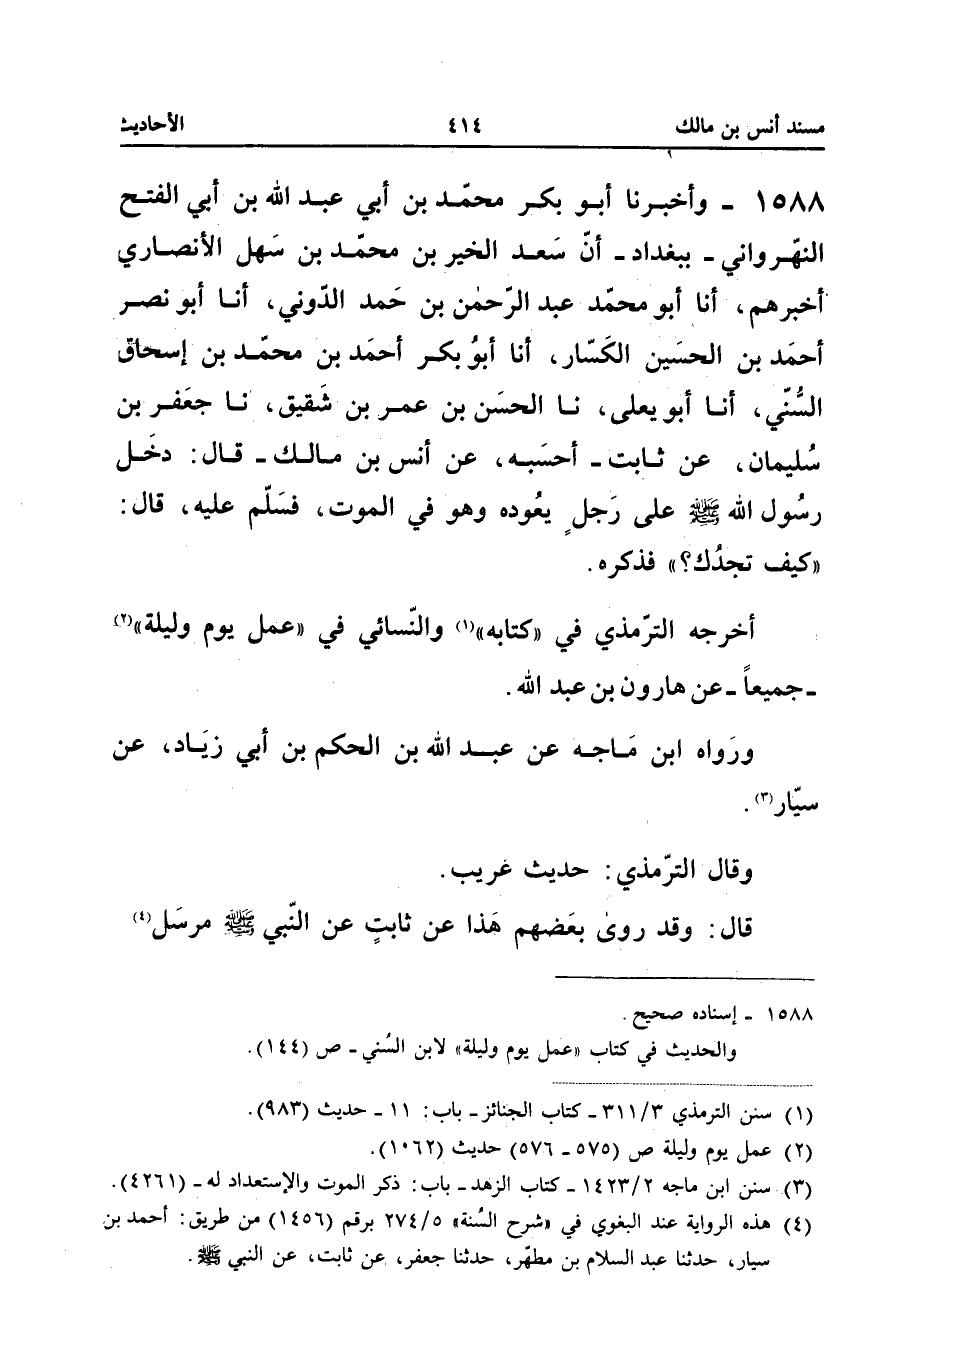 مسند أنس بن مالك ٤١٤ الأحاديث
١٥٨٨ ـ وأخبرنا أبو بكر محمّد بن أبي عبد الله بن أبي الفتح
النهّرواني ـ ببغداد ـ أنّ سَعد الخير بن محمّد بن سَهل الأنصاري
أخبرهم، أنا أبو محمّد عبد الرّحمٰن بن حَمد الدّوني، أنا أبو نصر
أحمَد بن الحسَين الكَسّار، أنا أبوُ بكر أحمَد بن محمّد بن إسحاقَ
السُّنّي، أنا أبو يعلى، نا الحسَن بن عمر بن شَقيق، نا جعَفر بن
سُليمان، عن ثابت ـ أحسَبه، عن أنس بن مالك ـ قال: دخَل
رسُول الله ﷺ على رَجلٍ يعُوده وهو في الموت، فسَلّم عليه، قال:
«كيف تجدُك؟» فذكره.
أخرجه الترّمذي في «كتابه»(١) والنّسائي في «عمل يوم وليلة»(٢)
ـ جميعاً ـ عن هارون بن عبد الله.
ورَواه ابن مَاجه عن عبد الله بن الحكم بن أبي زيَاد، عن
سيّار(٣).
وقال الترّمذي: حديث غريب.
قال: وقد روىٰ بعَضهم هَذا عن ثابتٍ عن النّبي ﷺ مرسَل(٤)
١٥٨٨ ـ إسناده صحيح.
والحديث في كتاب «عمل يوم وليلة» لابن السُني ـ ص (١٤٤).
(١) سنن الترمذي ٣١١/٣ ـ كتاب الجنائز ـ باب: ١١ ـ حديث (٩٨٣).
(٢) عمل يوم وليلة ص (٥٧٥ ـ ٥٧٦) حديث (١٠٦٢).
(٣) سنن ابن ماجه ١٤٢٣/٢ ـ كتاب الزهد ـ باب: ذكر الموت والإستعداد له ـ (٤٢٦١).
(٤) هذه الرواية عند البغوي في «شرح السُنة» ٢٧٤/٥ برقم (١٤٥٦) من طريق: أحمد بن
سيار، حدثنا عبد السلام بن مطهّر، حدثنا جعفر، عن ثابت، عن النبي ﷺ.